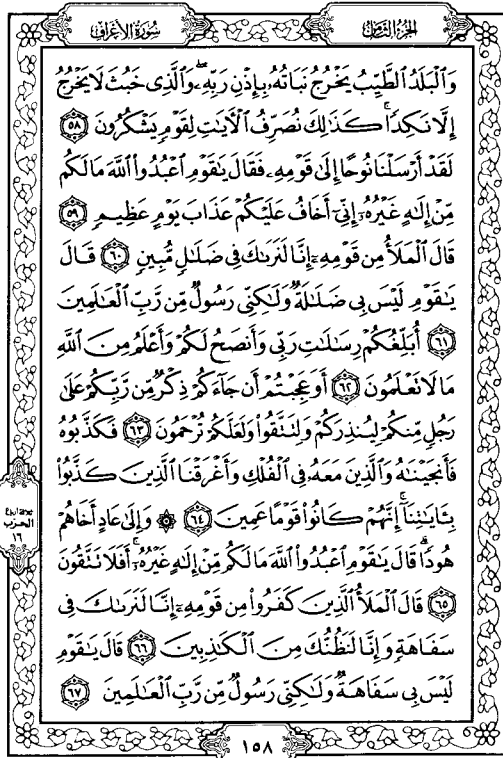 سُورَةُ الأَعْرَافِ
الجُزْءُ الثَّامِنُ
وَالْبَلَدُ الطَّيِّبُ يَخْرُجُ نَبَاتُهُۥ بِإِذْنِ رَبِّهِۦ ۖ وَالَّذِى خَبُثَ لَا يَخْرُجُ
إِلَّا نَكِدًا ۚ كَذَٰلِكَ نُصَرِّفُ الْآيَٰتِ لِقَوْمٍ يَشْكُرُونَ ٥٨
لَقَدْ أَرْسَلْنَا نُوحًا إِلَىٰ قَوْمِهِۦ فَقَالَ يَٰقَوْمِ اعْبُدُوا۟ اللَّهَ مَا لَكُم
مِّنْ إِلَٰهٍ غَيْرُهُۥٓ إِنِّىٓ أَخَافُ عَلَيْكُمْ عَذَابَ يَوْمٍ عَظِيمٍ ٥٩
قَالَ الْمَلَأُ مِن قَوْمِهِۦٓ إِنَّا لَنَرَىٰكَ فِى ضَلَٰلٍ مُّبِينٍ ٦٠ قَالَ
يَٰقَوْمِ لَيْسَ بِى ضَلَٰلَةٌ وَلَٰكِنِّى رَسُولٌ مِّن رَّبِّ الْعَٰلَمِينَ
٦١ أُبَلِّغُكُمْ رِسَٰلَٰتِ رَبِّى وَأَنصَحُ لَكُمْ وَأَعْلَمُ مِنَ اللَّهِ
مَا لَا تَعْلَمُونَ ٦٢ أَوَعَجِبْتُمْ أَن جَآءَكُمْ ذِكْرٌ مِّن رَّبِّكُمْ عَلَىٰ
رَجُلٍ مِّنكُمْ لِيُنذِرَكُمْ وَلِتَتَّقُوا۟ وَلَعَلَّكُمْ تُرْحَمُونَ ٦٣ فَكَذَّبُوهُ
فَأَنجَيْنَٰهُ وَالَّذِينَ مَعَهُۥ فِى الْفُلْكِ وَأَغْرَقْنَا الَّذِينَ كَذَّبُوا۟
بِـَٔايَٰتِنَآ ۚ إِنَّهُمْ كَانُوا۟ قَوْمًا عَمِينَ ٦٤ ۞ وَإِلَىٰ عَادٍ أَخَاهُمْ
هُودًا ۗ قَالَ يَٰقَوْمِ اعْبُدُوا۟ اللَّهَ مَا لَكُم مِّنْ إِلَٰهٍ غَيْرُهُۥٓ ۚ أَفَلَا تَتَّقُونَ
٦٥ قَالَ الْمَلَأُ الَّذِينَ كَفَرُوا۟ مِن قَوْمِهِۦٓ إِنَّا لَنَرَىٰكَ فِى
سَفَاهَةٍ وَإِنَّا لَنَظُنُّكَ مِنَ الْكَٰذِبِينَ ٦٦ قَالَ يَٰقَوْمِ
لَيْسَ بِى سَفَاهَةٌ وَلَٰكِنِّى رَسُولٌ مِّن رَّبِّ الْعَٰلَمِينَ ٦٧
الحزب
١٦
١٥٨